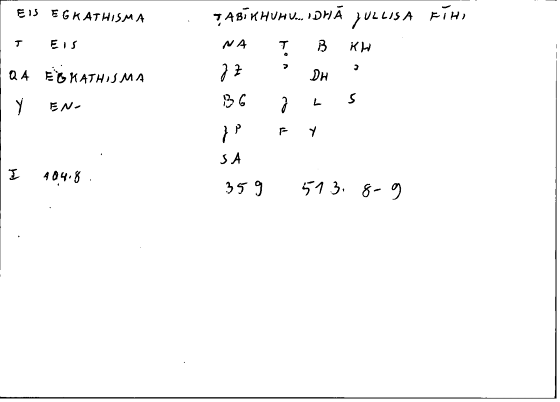 EIS EGKATHISMA ṬABĪKHUHU...IDHĀ JULLISA FĪHI
T EIS NA Ṭ B KH
QA EGKATHISMA JZ ' DH '
Y EN- BG J L S
JP F Y
SA
I 104.8 359 513. 8-9